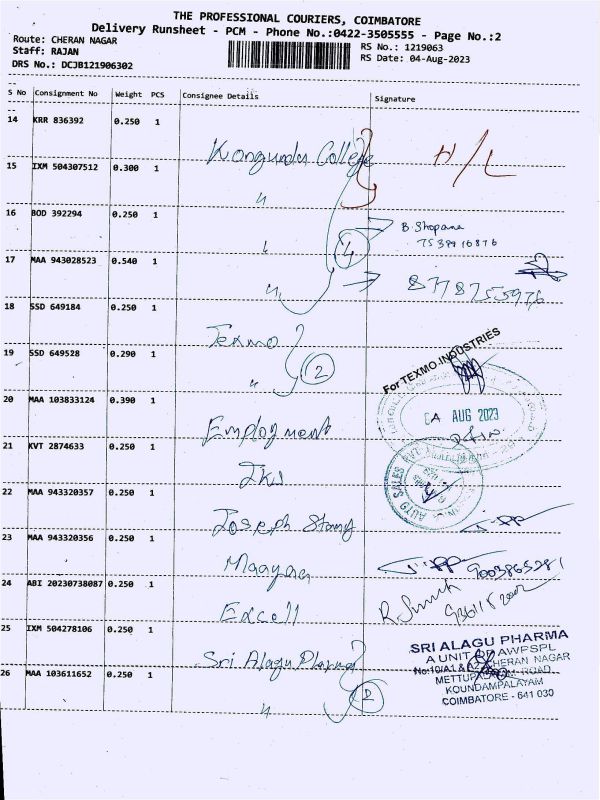 THE PROFESSIONAL COURIERS, COIMBATORE
Delivery Runsheet - PCM - Phone No.:0422-3505555 - Page No.:2
Route: CHERAN NAGAR
Staff: RAJAN
DRS No.: DCJB121906302
RS No.: 1219063
RS Date: 04-Aug-2023
S No Consignment No Weight PCS Consignee Details Signature
14 KRR 836392 0.250 1 Kongundu College H/L
15 IXM 504307512 0.300 1 "
16 BOD 392294 0.250 1 "
B Shopana
7539916876
4
17 MAA 943028523 0.540 1 "
8778755976
18 SSD 649184 0.250 1 Texmo
For TEXMO INDUSTRIES
19 SSD 649528 0.290 1 "
2
20 MAA 103833124 0.390 1 Employment
AUG 2023
21 KVT 2874633 0.250 1
AUTO SALES
22 MAA 943320357 0.250 1 Joseph
23 MAA 943320356 0.250 1
9003865281
24 ABI 20230738087 0.250 1 Excell
25 IXM 504278106 0.250 1 Sri Alagu Pharma
SRI ALAGU PHARMA
A UNIT OF AWPSPL
CHERAN NAGAR
METTUPALAYAM ROAD,
KOUNDAMPALAYAM
COIMBATORE - 641 030
26 MAA 103611652 0.250 1 "
2